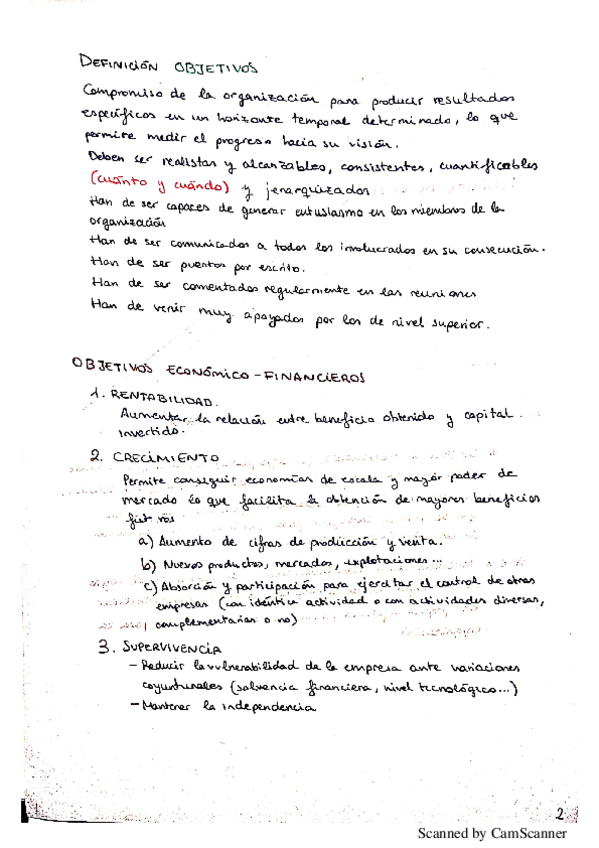 DEFINICIÓN OBJETIVOS
Compromiso de la organización para producir resultados
específicos en un horizonte temporal determinado, lo que
permite medir el progreso hacia su visión.
Deben ser realistas y alcanzables, consistentes, cuantificables
(cuánto y cuándo) y jerarquizados
Han de ser capaces de generar entusiasmo en los miembros de la
organización
Han de ser comunicados a todos los involucrados en su consecución.
Han de ser puestos por escrito.
Han de ser comentados regularmente en las reuniones
Han de venir muy apoyados por los de nivel superior.
OBJETIVOS ECONÓMICO-FINANCIEROS
1. RENTABILIDAD.
Aumentar la relación entre beneficio obtenido y capital
invertido.
2. CRECIMIENTO
Permite conseguir economías de escala y mayor poder de
mercado lo que facilita la obtención de mayores beneficios
a) Aumento de cifras de producción y venta.
b) Nuevos productos, mercados, explotaciones...
c) Absorción y participación para ejercitar el control de otras
empresas (con idéntica actividad o con actividades diversas,
complementarias o no)
3. SUPERVIVENCIA
- Reducir la vulnerabilidad de la empresa ante variaciones
coyunturales (solvencia financiera, nivel tecnológico...)
- Mantener la independencia
2
Scanned by CamScanner